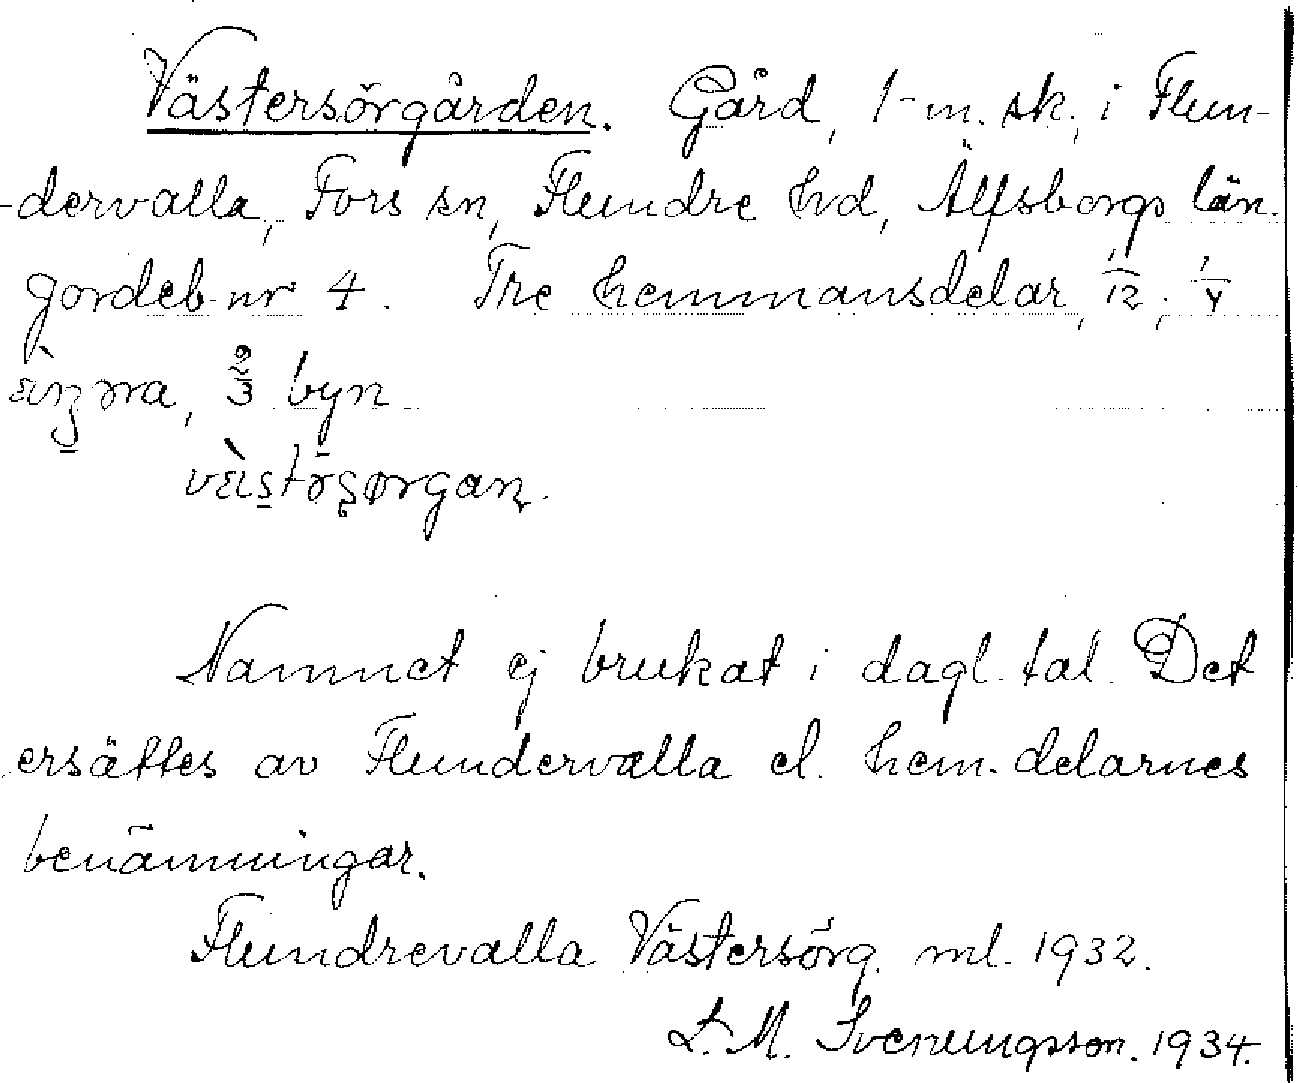 Västersörgården. Gård, 1-m. sk., i Flun-
-dervalla, Fors sn, Flundre hd, Älfsborgs län.
Jordeb. nr 4. Tre hemmansdelar, 1/12, 1/4
byn
Namnet ej brukat i dagl. tal. Det
ersättes av Flundervalla el. hem. delarnes
benämningar.
Flundrevalla Västersörg. ml. 1932.
L. M. Svenungsson. 1934.